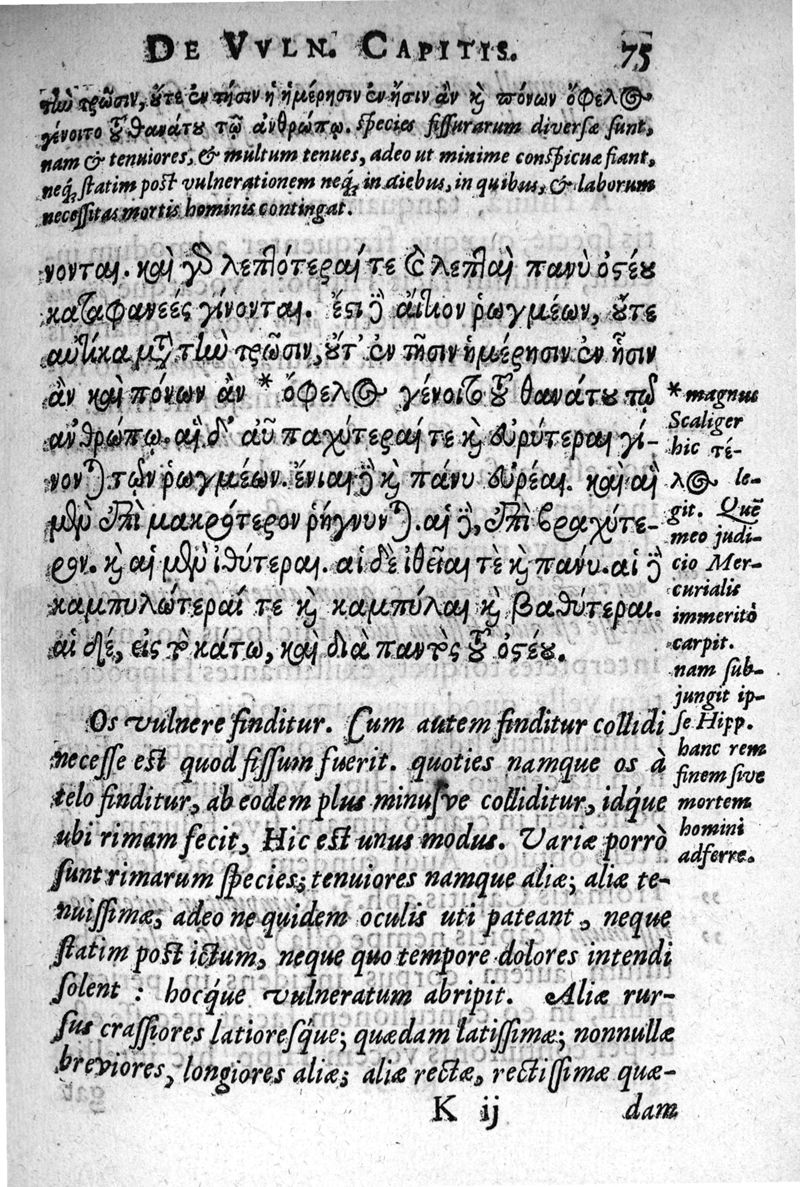 DE VVLN. CAPITIS. 75
τὴν τρῶσιν, οὔτε ἐν τῇσιν ἡ ἡμέρησιν ἐν ᾗσιν ἂν καὶ πόνων ὄφελος
γένοιτο τοῦ θανάτου τῷ ἀνθρώπῳ. species fissurarum diversæ sunt,
nam & tenuiores, & multum tenues, adeo ut minime conspicuæ fiant,
neq́, statim post vulnerationem neq́, in diebus, in quibus, & laborum
necessitas mortis hominis contingat.
νονται. καὶ γὸ λεπτότεραί τε καὶ λεπταὶ πανὺ ὀστέου
καταφανεές γίνονται. ἔστι δὲ αἴτιον ῥωγμέων, οὔτε
αὐτίκα μετὰ τὴν τρῶσιν, οὔτ' ἐν τῇσιν ἡμέρησιν ἐν ᾗσιν
ἂν καὶ πόνων ἂν * ὄφελος γένοιτο τοῦ θανάτου τῷ
ἀνθρώπῳ. αἱ δ' αὖ παχύτεραί τε καὶ εὐρύτεραι γί-
νονται τῶν ῥωγμέων. ἔνιαι δὲ καὶ πάνυ εὐρέαι. καὶ αἱ
μὲν ἐπὶ μακρότερον ῥήγνυνται. αἱ δὲ, ἐπὶ βραχύτε-
ρον. καὶ αἱ μὲν ἰθύτεραι. αἱ δὲ ἰθεῖαι τὲ καὶ πάνυ. αἱ δὲ
καμπυλώτεραί τε καὶ καμπύλαι καὶ βαθύτεραι.
αἱ δὲ, εἰς τὸ κάτω, καὶ διὰ παντὸς τοῦ ὀστέου.
* magnus
Scaliger
hic τέ-
λος le-
git. Quē
meo judi-
cio Mer-
curialis
immeritò
carpit.
nam sub-
jungit ip-
se Hipp.
hanc rem
finem sive
mortem
homini
adferre.
Os vulnere finditur. Cum autem finditur collidi
necesse est quod fissum fuerit. quoties namque os à
telo finditur, ab eodem plus minusve colliditur, idq́ue
ubi rimam fecit, Hic est unus modus. Variæ porrò
sunt rimarum species; tenuiores namque aliæ; aliæ te-
nuissimæ, adeo ne quidem oculis uti pateant, neque
statim post ictum, neque quo tempore dolores intendi
solent : hocq́ue vulneratum abripit. Aliæ rur-
sus crassiores latioresq́ue; quædam latissimæ; nonnullæ
breviores, longiores aliæ; aliæ rectæ, rectissimæ quæ-
K ij dam